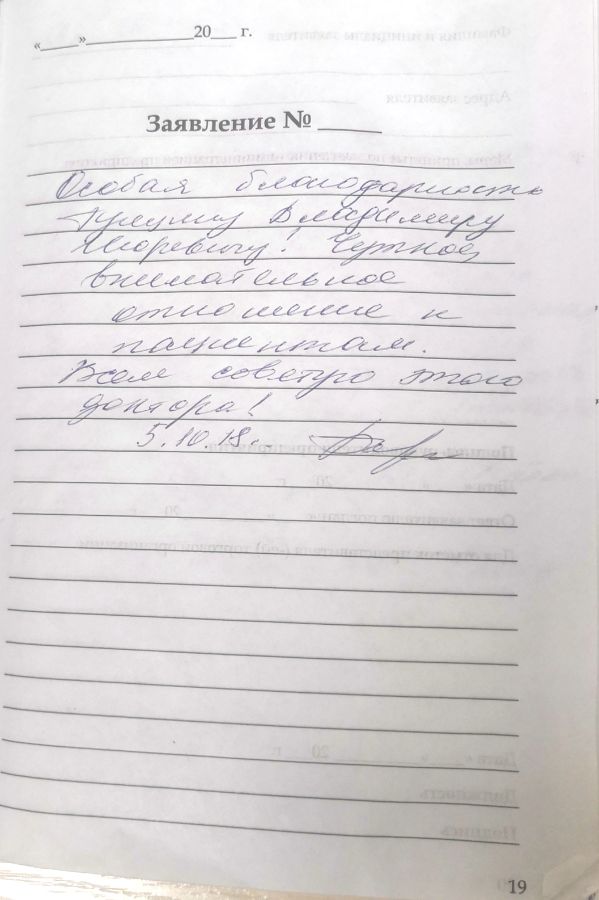 «____»______________20___ г.
Заявление № _____
Особая благодарность
Владимиру
Игоревичу! Чуткое,
внимательное
отношение к
пациентам.
Всем советую этого
доктора!
5.10.18г.
19